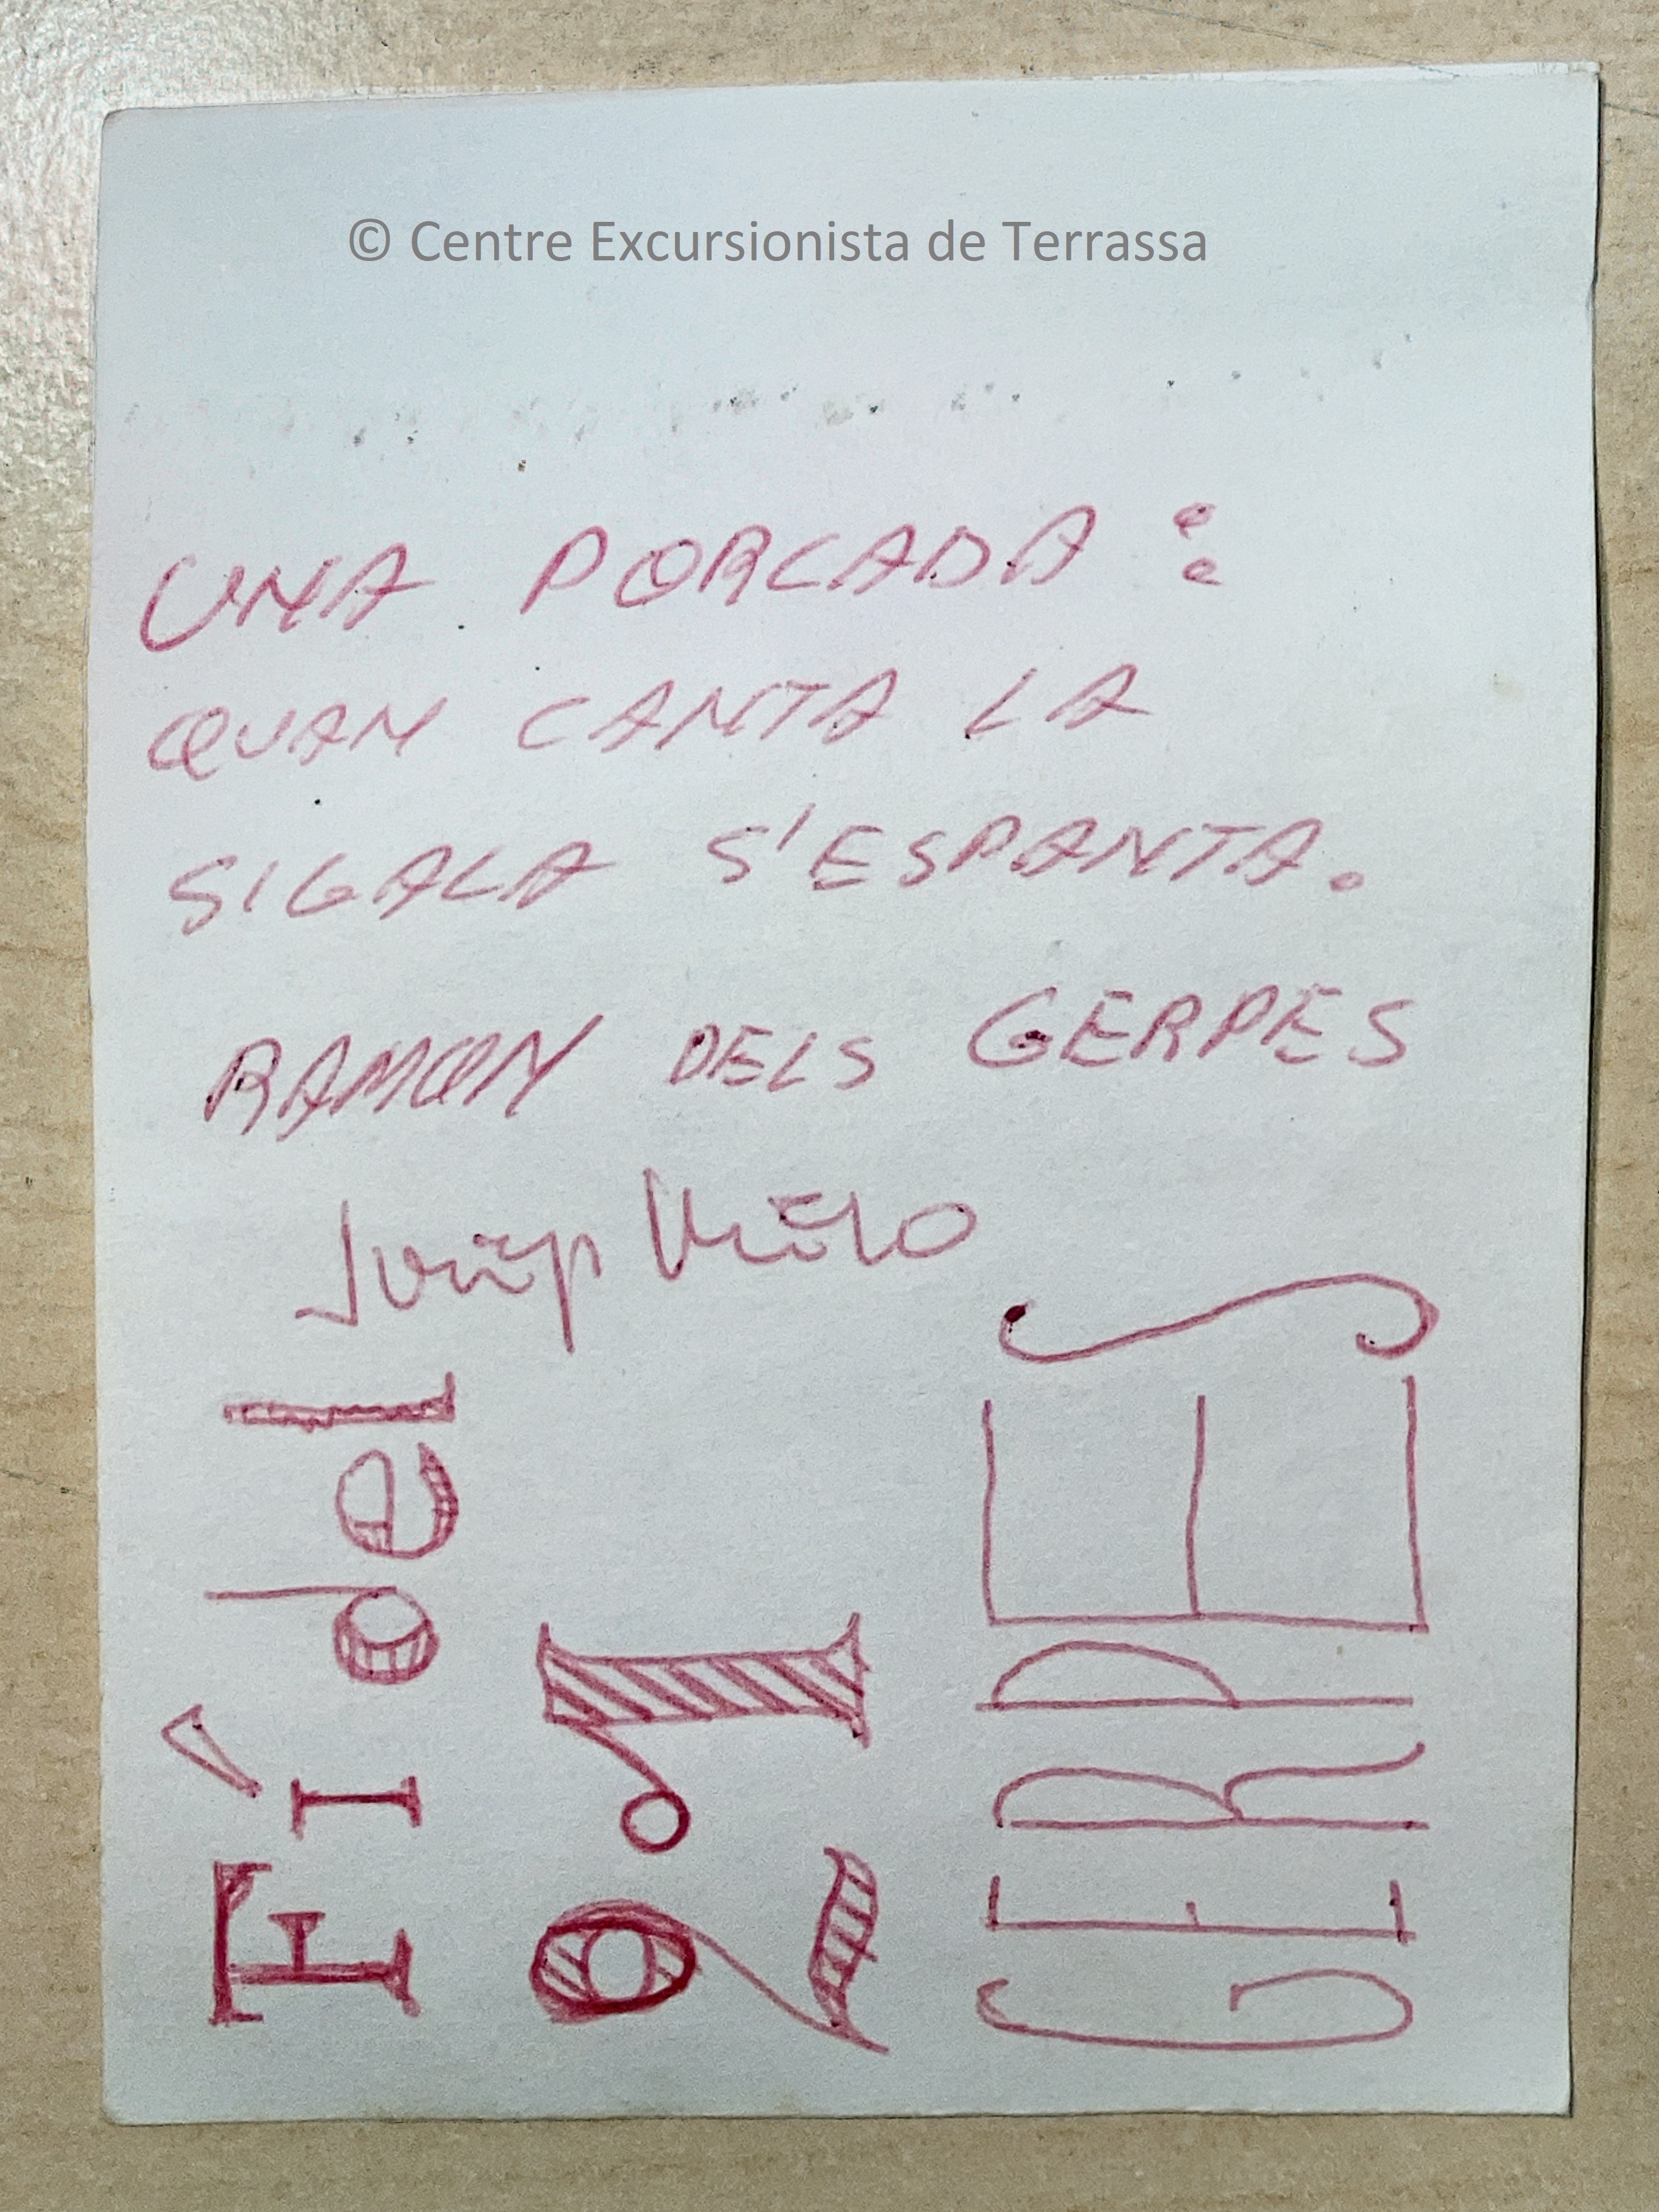 © Centre Excursionista de Terrassa
UNA PORCADA:
QUAN CANTA LA
SIGALA S'ESPANTA.
RAMON DELS GERPES
Josep
Fídel
91
GERPES